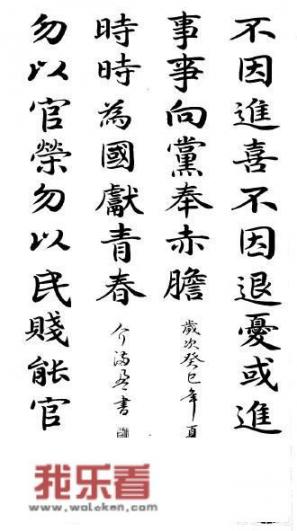 不因進喜不因退憂或進
事事向黨奉赤膽
歲次癸巳年夏
時時為國獻青春
書
勿以官榮勿以民賤能官
我乐看
www.woleken.com